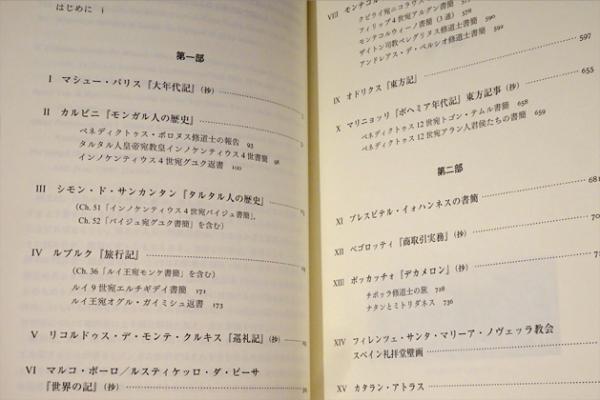 はじめに i
第一部
I マシュー・パリス『大年代記』(抄)
II カルピニ『モンガル人の歴史』
ベネディクトゥス・ポロヌス修道士の報告 93
タルタル人皇帝宛教皇インノケンティウス4世書簡 98
インノケンティウス4世宛グユク返書 100
III シモン・ド・サンカンタン『タルタル人の歴史』
(Ch. 51「インノケンティウス4世宛バイジュ書簡」,
Ch. 52「バイジュ宛グユク書簡」を含む)
IV ルブルク『旅行記』
(Ch. 36「ルイ王宛モンケ書簡」を含む)
ルイ9世宛エルチギデイ書簡 171
ルイ王宛オグル・ガイミシュ返書 173
V リコルドゥス・デ・モンテ・クルキス『巡礼記』(抄)
VI マルコ・ポーロ/ルスティケッロ・ダ・ピーサ
『世界の記』(抄)
VIII モンテコル
クビライ宛ニコラウス
フィリップ4世宛アルグン書簡
モンテコルウィーノ書簡(3通) 590
ザイトン司教ペレグリヌス修道士書簡
アンドレアス・デ・ペルシオ修道士書簡
597
IX オドリクス『東方記』
655
X マリニョッリ『ボヘミア年代記』東方記事(抄)
ベネディクトゥス12世宛トゴン・テムル書簡 658
ベネディクトゥス12世宛アラン人君侯たちの書簡 659
第二部
XI プレスビテル・イォハンネスの書簡 681
XII ペゴロッティ『商取引実務』(抄) 70
XIII ボッカッチォ『デカメロン』(抄)
チポッラ修道士の旅 728
ナタンとミトリダネス 736
XIV フィレンツェ・サンタ・マリーア・ノヴェッラ教会
スペイン礼拝堂壁画
XV カタラン・アトラス